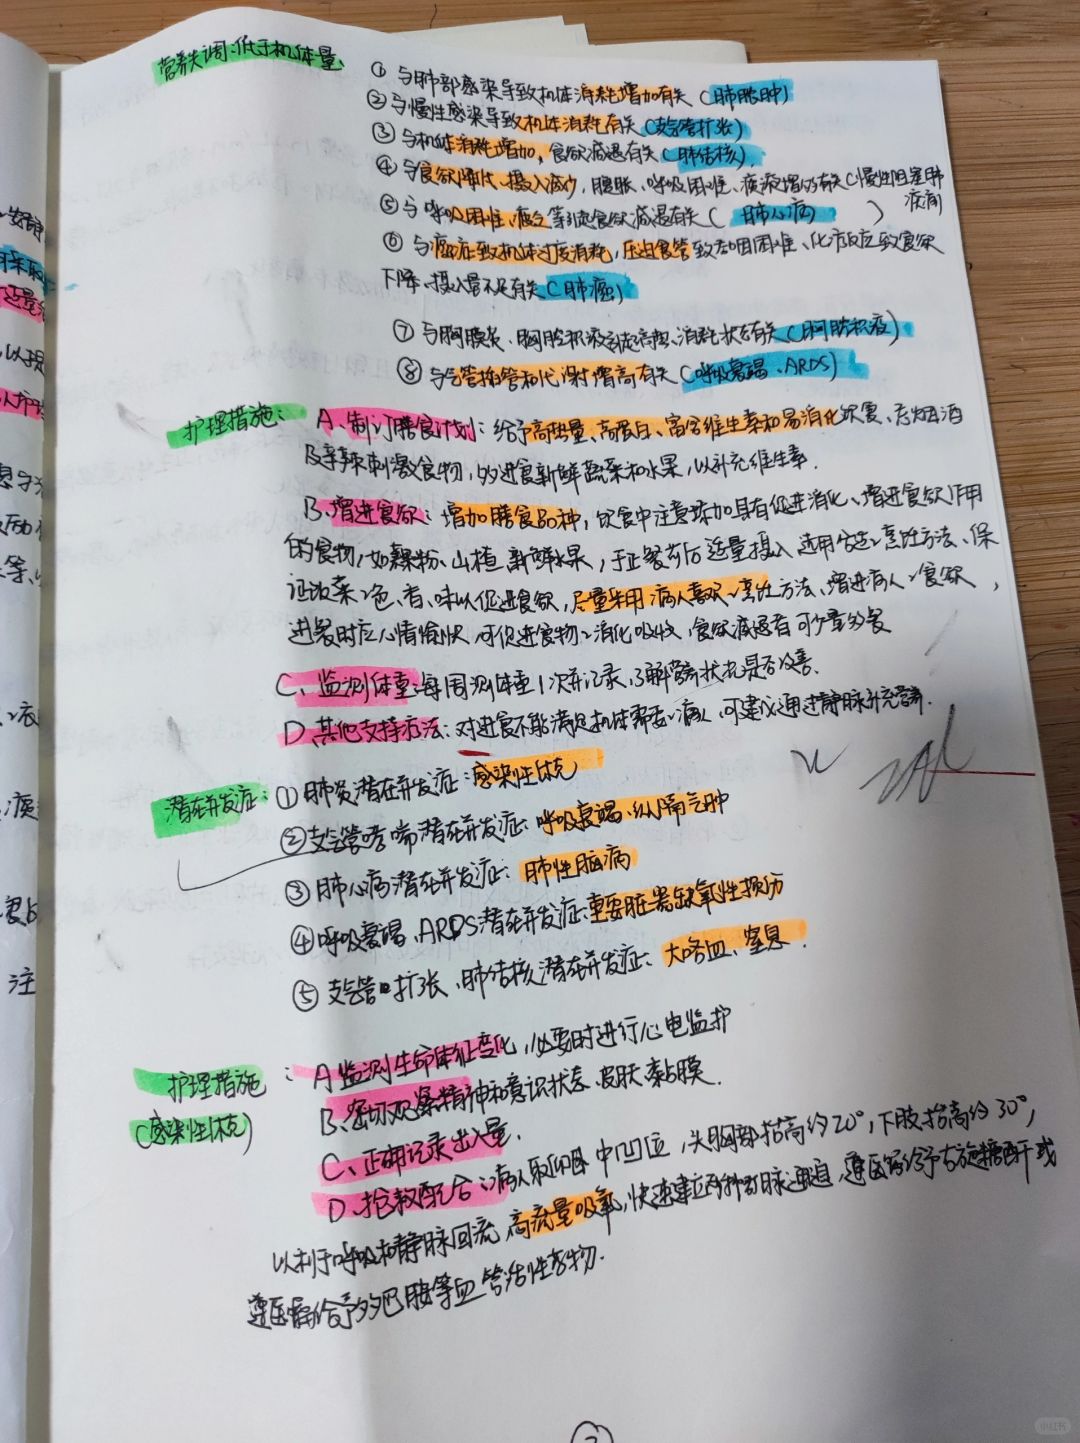 营养失调:低于机体量:
① 与肺部感染导致机体消耗增加有关(肺脓肿)
② 与慢性感染导致机体消耗有关(支气管扩张)
③ 与机体消耗增加,食欲减退有关(肺结核)
④ 与食欲降低、摄入减少,腹胀、呼吸困难、痰液增多有关(慢性阻塞肺疾病
⑤ 与呼吸困难、疲乏等引起食欲减退有关(肺心病)
⑥ 与癌症致机体过度消耗,压迫食管致吞咽困难、化疗反应致食欲
下降、摄入量不足有关(肺癌)
⑦ 与胸膜炎、胸腔积液引起高热、消耗状态有关(胸腔积液)
⑧ 与气管插管和代谢增高有关(呼吸衰竭、ARDS)
护理措施: A、制订膳食计划:给予高热量、高蛋白、富含维生素和易消化饮食、忌烟酒
及辛辣刺激食物,多进食新鲜蔬菜和水果,以补充维生素.
B、增进食欲:增加膳食品种,饮食中注意添加具有促进消化、增进食欲作用
的食物,如藕粉、山楂、新鲜水果,于正餐前后适量摄入 选用合适之烹饪方法、保
证饭菜之色、香、味以促进食欲,尽量采用病人喜欢之烹饪方法、增进病人之食欲,
进餐时应心情愉快,可促进食物之消化吸收,食欲减退者可少量多餐
C、监测体重:每周测体重1次并记录,了解营养状况是否改善.
D、其他支持疗法:对进食不能满足机体需要之病人,可建议通过静脉补充营养.
潜在并发症:① 肺炎潜在并发症:感染性休克
② 支气管哮喘潜在并发症:呼吸衰竭、纵隔气肿
③ 肺心病潜在并发症:肺性脑病
④ 呼吸衰竭、ARDS潜在并发症:重要脏器缺氧性损伤
⑤ 支气管扩张、肺结核潜在并发症:大咯血、窒息.
护理措施: A 监测生命体征变化,必要时进行心电监护
(感染性休克) B、密切观察精神和意识状态、皮肤、黏膜.
C、正确记录出入量.
D、抢救配合:病人取仰卧中凹位,头胸部抬高约20°,下肢抬高约30°,
以利于呼吸和静脉回流,高流量吸氧,快速建立两种静脉通道,遵医嘱给予右旋糖酐或
遵医嘱给予多巴胺等血管活性药物.
小红书